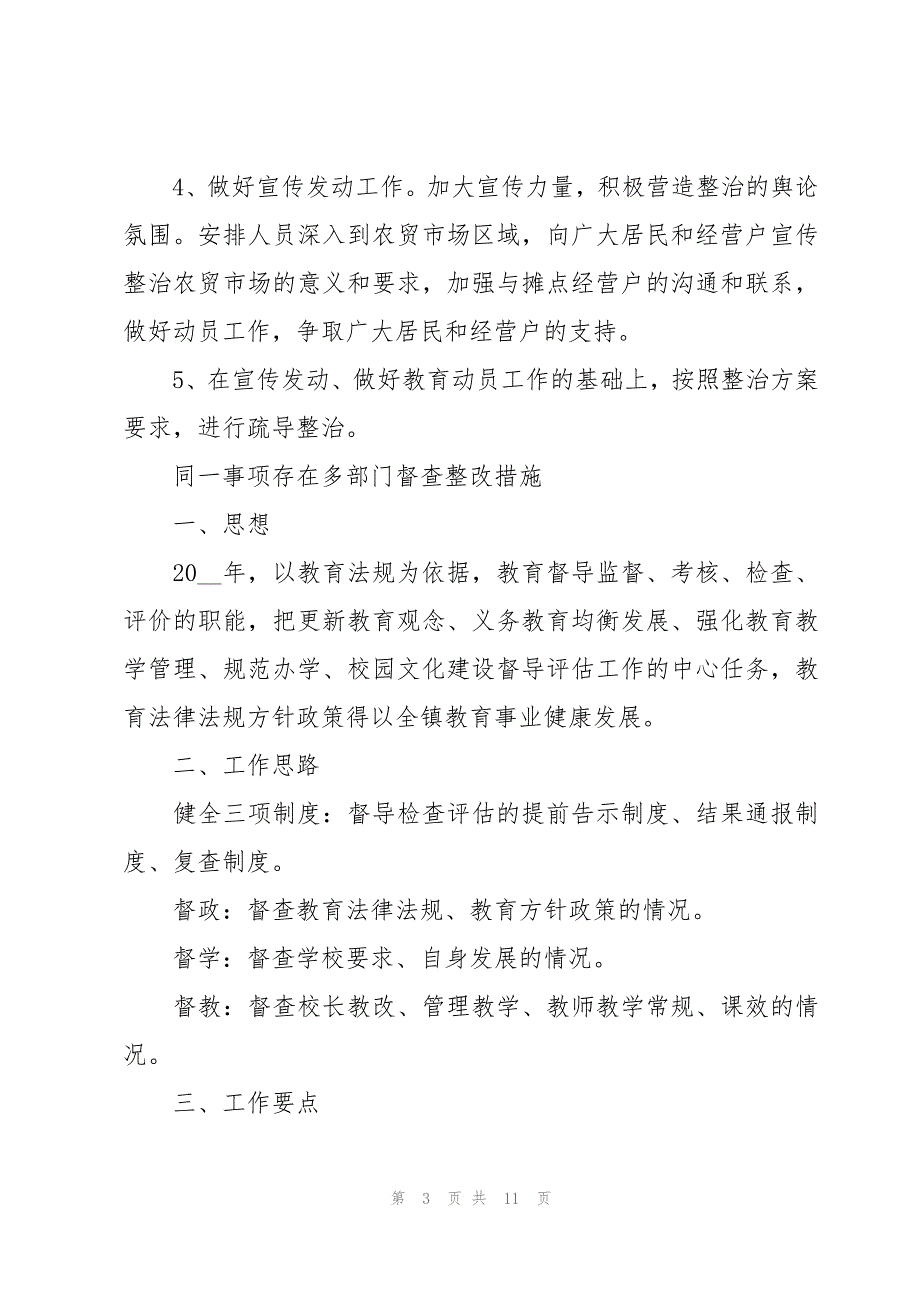 4、做好宣传发动工作。加大宣传力量，积极营造整治的舆论
氛围。安排人员深入到农贸市场区域，向广大居民和经营户宣传
整治农贸市场的意义和要求，加强与摊点经营户的沟通和联系，
做好动员工作，争取广大居民和经营户的支持。
5、在宣传发动、做好教育动员工作的基础上，按照整治方案
要求，进行疏导整治。
同一事项存在多部门督查整改措施
一、思想
20__年，以教育法规为依据，教育督导监督、考核、检查、
评价的职能，把更新教育观念、义务教育均衡发展、强化教育教
学管理、规范办学、校园文化建设督导评估工作的中心任务，教
育法律法规方针政策得以全镇教育事业健康发展。
二、工作思路
健全三项制度：督导检查评估的提前告示制度、结果通报制
度、复查制度。
督政：督查教育法律法规、教育方针政策的情况。
督学：督查学校要求、自身发展的情况。
督教：督查校长教改、管理教学、教师教学常规、课效的情
况。
三、工作要点
第 3 页 共 11 页